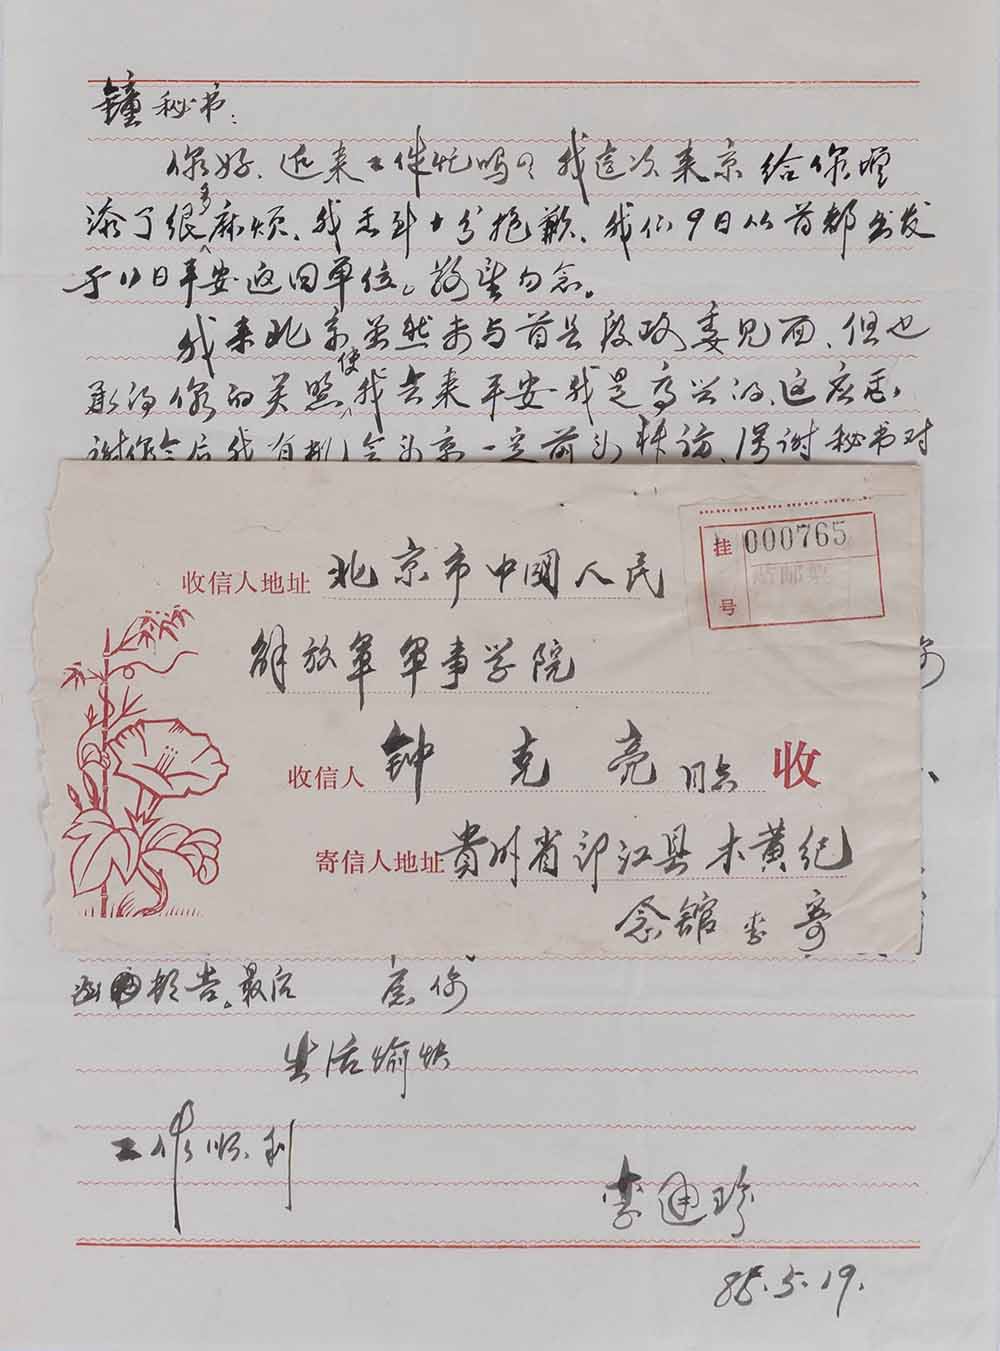 鐘秘书:
你好、近来工作忙吗?我这次来京给你增
添了很多麻烦、我表到十分抱歉、我们9日从首都出发
于11日平安返回单位。敬望勿念。
我来北京虽然未与首长段政委见面、但也
承得你的关照使我去来平安我是高兴的、这应感
谢你今后我有机会到京一定前到拜访、深谢秘书对
收信人地址 北京市中國人民
解放軍軍事学院
收信人 钟克亮同志 收
寄信人地址 貴州省印江县木黄纪
念館 李寄
挂号 000765
你
函 报告。最后 祝你
生活愉快
工作顺利
李迪珍
85.5.19.